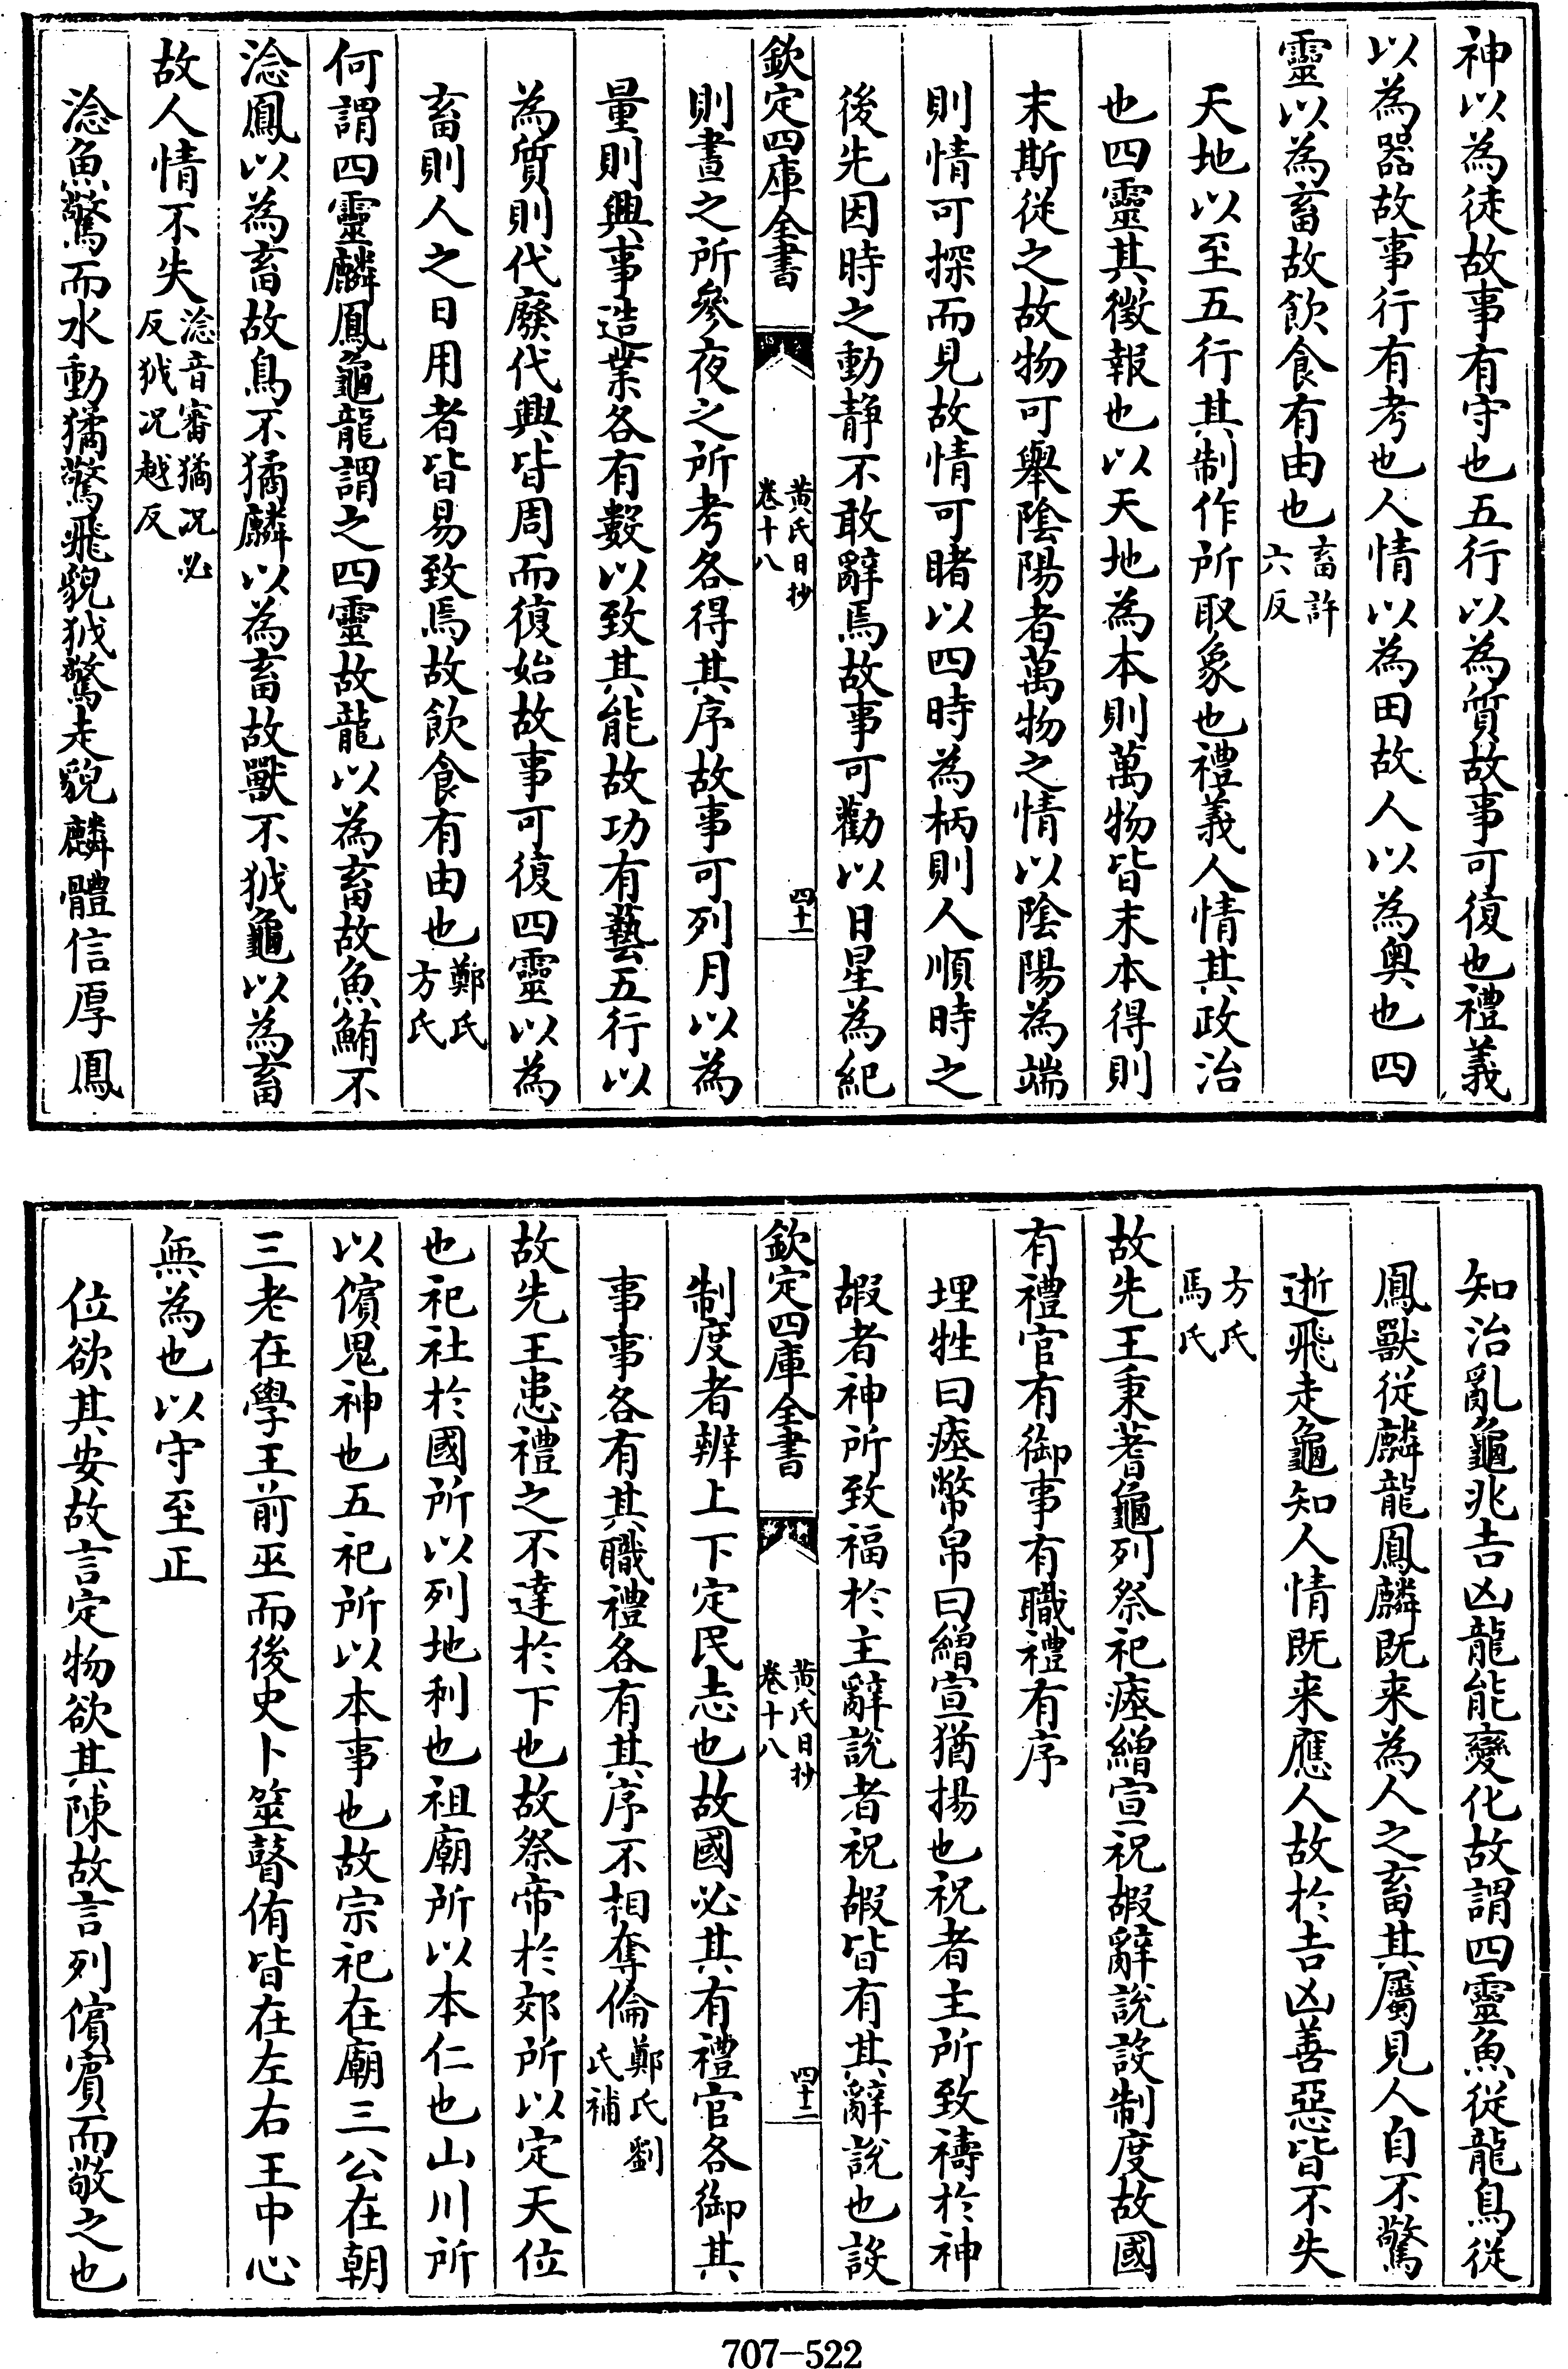 神以為徒故事有守也五行以為質故事可復也禮義
以為器故事行有考也人情以為田故人以為奥也四
靈以為畜故飲食有由也畜許
六反
天地以至五行其制作所取象也禮義人情其政治
也四靈其徵報也以天地為本則萬物皆末本得則
末斯從之故物可舉陰陽者萬物之情以陰陽為端
則情可探而見故情可睹以四時為柄則人順時之
後先因時之動静不敢辭焉故事可勸以日星為紀
欽定四庫全書
黃氏日抄
卷十八
四十一
則晝之所參夜之所考各得其序故事可列月以為
量則興事造業各有數以致其能故功有藝五行以
為質則代廢代興皆周而復始故事可復四靈以為
畜則人之日用者皆易致焉故飲食有由也鄭氏
方氏
何謂四靈麟鳳龜龍謂之四靈故龍以為畜故魚鮪不
淰鳳以為畜故鳥不獝麟以為畜故獸不狘龜以為畜
故人情不失淰音審獝况必
反狘况越反
淰魚驚而水動獝驚飛貌狘驚走貌麟體信厚鳳
知治亂龜兆吉凶龍能變化故謂四靈魚從龍鳥從
鳳獸從麟龍鳳麟既来為人之畜其屬見人自不驚
逝飛走龜知人情既来應人故於吉凶善惡皆不失
方氏
馬氏
故先王秉蓍龜列祭祀瘞繒宣祝嘏辭說設制度故國
有禮官有御事有職禮有序
埋牲曰瘞幣帛曰繒宣猶揚也祝者主所致禱於神
嘏者神所致福於主辭說者祝嘏皆有其辭說也設
欽定四庫全書
黃氏日抄
卷十八
四十二
制度者辨上下定民志也故國必其有禮官各御其
事事各有其職禮各有其序不相奪倫鄭氏劉
氏補
故先王患禮之不達於下也故祭帝於郊所以定天位
也祀社於國所以列地利也祖廟所以本仁也山川所
以儐鬼神也五祀所以本事也故宗祀在廟三公在朝
三老在學王前巫而後史卜筮瞽侑皆在左右王中心
無為也以守至正
位欲其安故言定物欲其陳故言列儐賓而敬之也
707-522